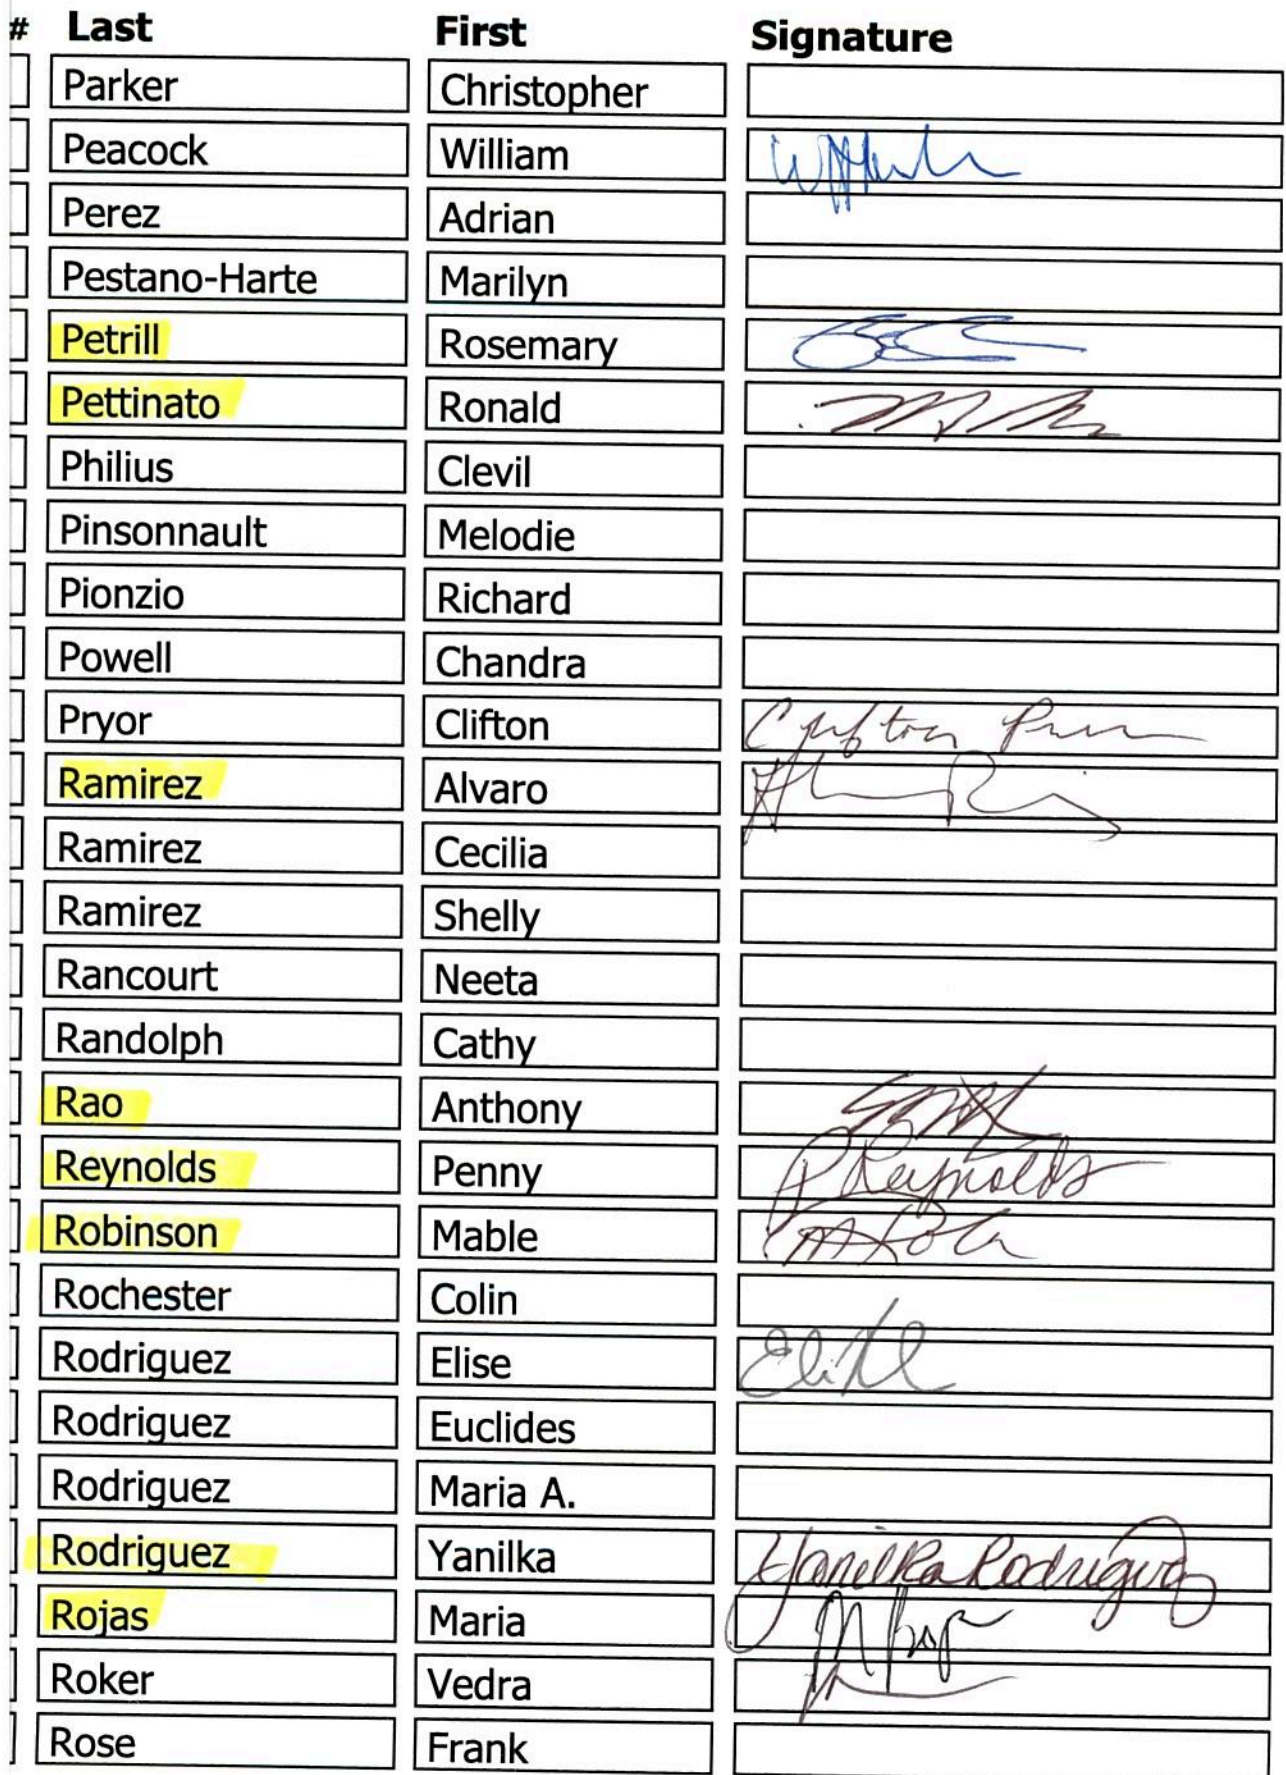 # Last First Signature
Parker Christopher
Peacock William
Perez Adrian
Pestano-Harte Marilyn
Petrill Rosemary
Pettinato Ronald
Philius Clevil
Pinsonnault Melodie
Pionzio Richard
Powell Chandra
Pryor Clifton Clifton
Ramirez Alvaro
Ramirez Cecilia
Ramirez Shelly
Rancourt Neeta
Randolph Cathy
Rao Anthony
Reynolds Penny P Reynolds
Robinson Mable
Rochester Colin
Rodriguez Elise
Rodriguez Euclides
Rodriguez Maria A.
Rodriguez Yanilka Yanilka Rodriguez
Rojas Maria
Roker Vedra
Rose Frank